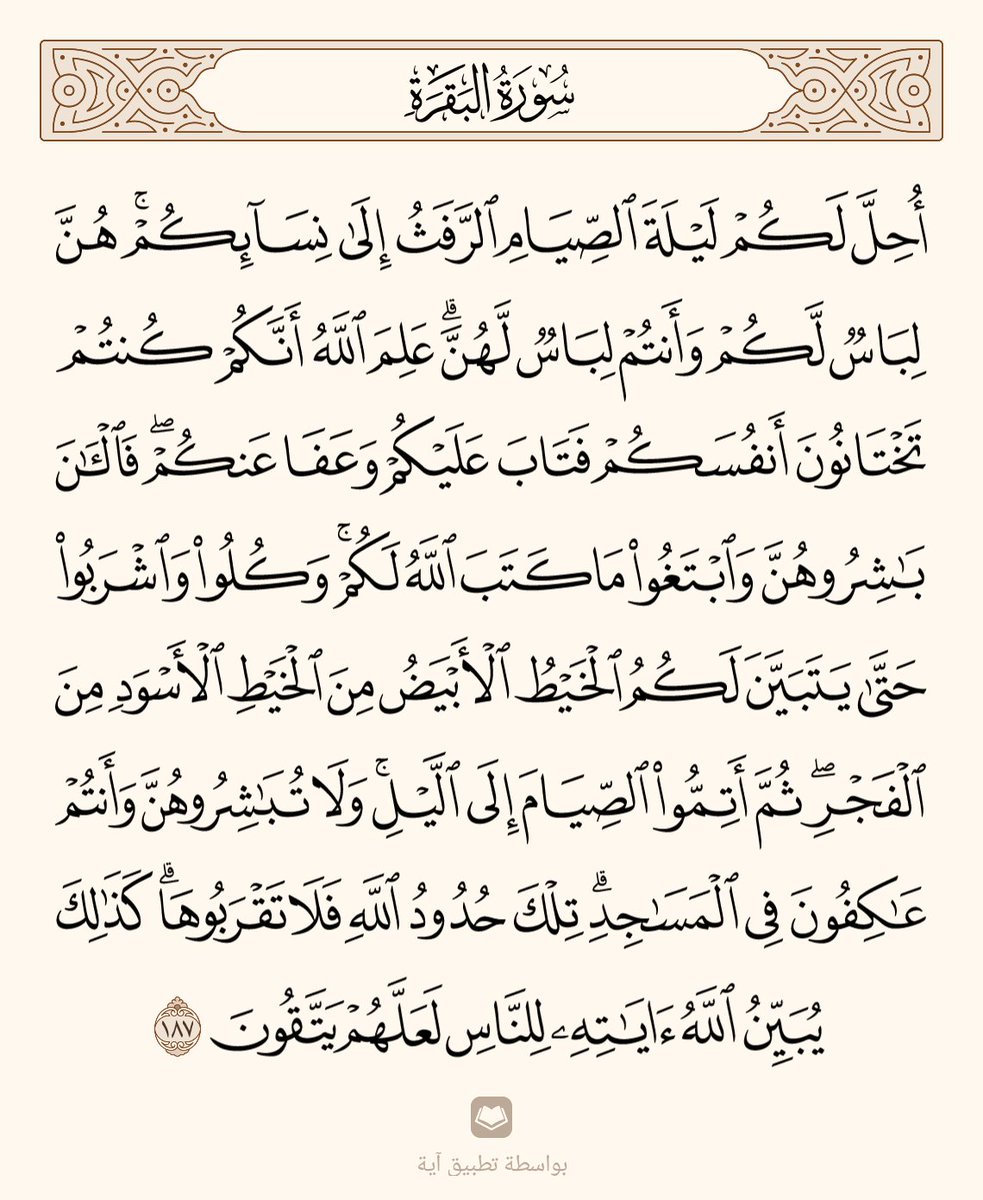 سُورَةُ البَقَرَةِ
أُحِلَّ لَكُمۡ لَيۡلَةَ ٱلصِّيَامِ ٱلرَّفَثُ إِلَىٰ نِسَآئِكُمۡۚ هُنَّ
لِبَاسٞ لَّكُمۡ وَأَنتُمۡ لِبَاسٞ لَّهُنَّۗ عَلِمَ ٱللَّهُ أَنَّكُمۡ كُنتُمۡ
تَخۡتَانُونَ أَنفُسَكُمۡ فَتَابَ عَلَيۡكُمۡ وَعَفَا عَنكُمۡۖ فَٱلۡـَٰٔنَ
بَٰشِرُوهُنَّ وَٱبۡتَغُواْ مَا كَتَبَ ٱللَّهُ لَكُمۡۚ وَكُلُواْ وَٱشۡرَبُواْ
حَتَّىٰ يَتَبَيَّنَ لَكُمُ ٱلۡخَيۡطُ ٱلۡأَبۡيَضُ مِنَ ٱلۡخَيۡطِ ٱلۡأَسۡوَدِ مِنَ
ٱلۡفَجۡرِۖ ثُمَّ أَتِمُّواْ ٱلصِّيَامَ إِلَى ٱلَّيۡلِۚ وَلَا تُبَٰشِرُوهُنَّ وَأَنتُمۡ
عَٰكِفُونَ فِي ٱلۡمَسَٰجِدِۗ تِلۡكَ حُدُودُ ٱللَّهِ فَلَا تَقۡرَبُوهَاۗ كَذَٰلِكَ
يُبَيِّنُ ٱللَّهُ ءَايَٰتِهِۦ لِلنَّاسِ لَعَلَّهُمۡ يَتَّقُونَ ١٨٧
بواسطة تطبيق آية